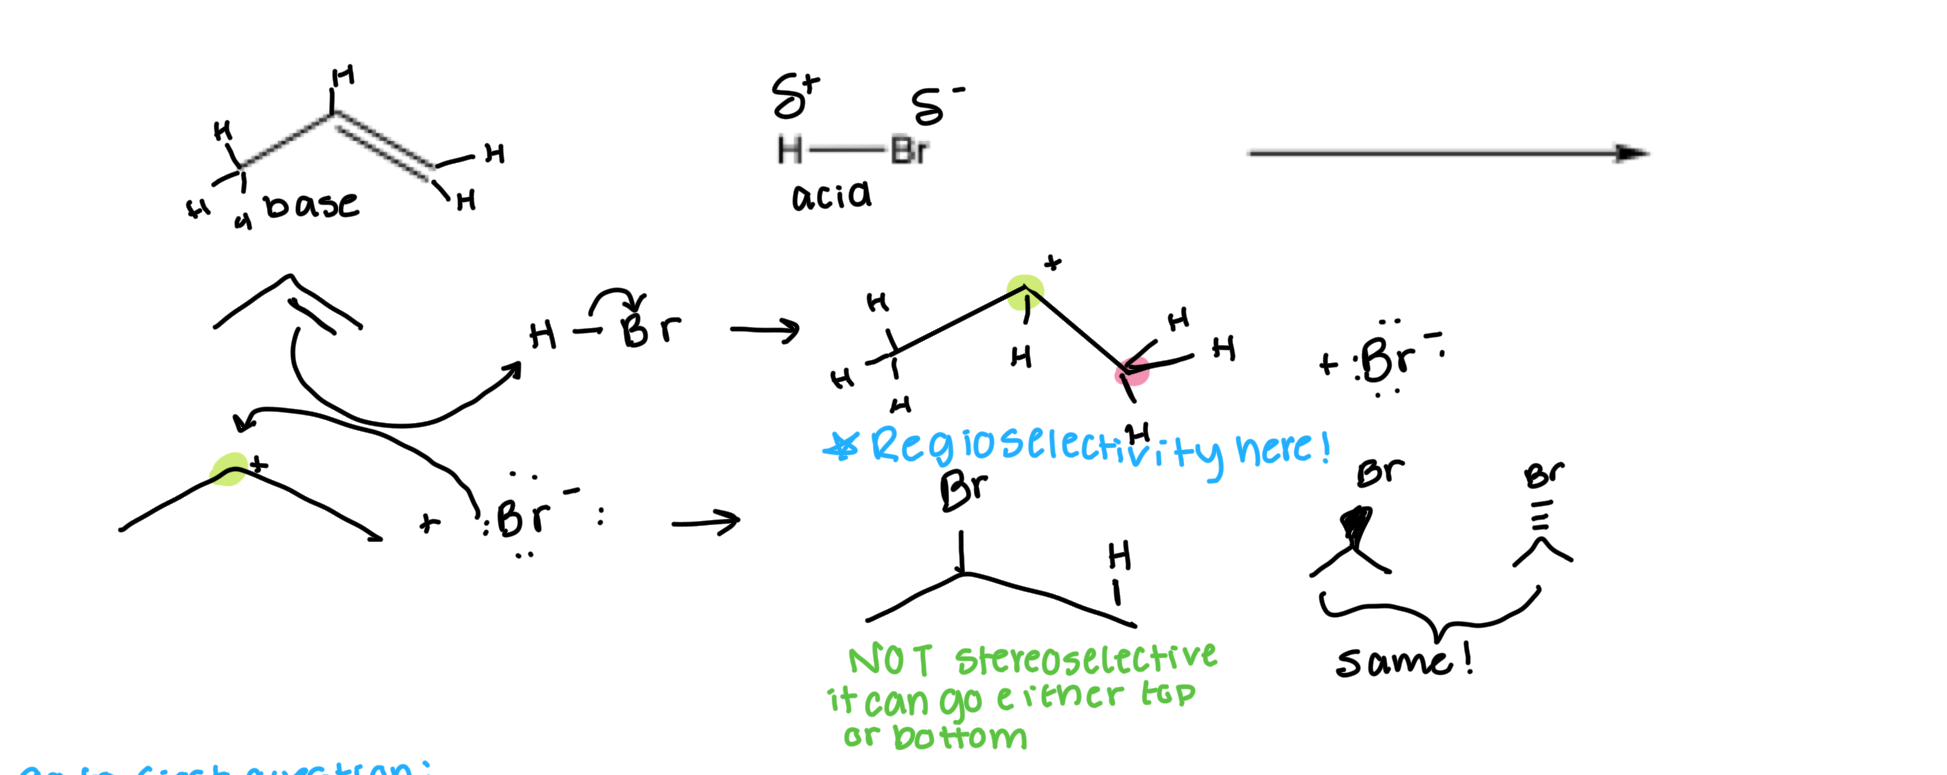 H
δ+ δ-
H H—Br H
H
H H base acid
+
H H
H—Br → H H H + :Br:-
H
H
★ Regioselectivity here!
+ Br Br Br
+ :Br:- → H
same!
NOT stereoselective
it can go either top
or bottom